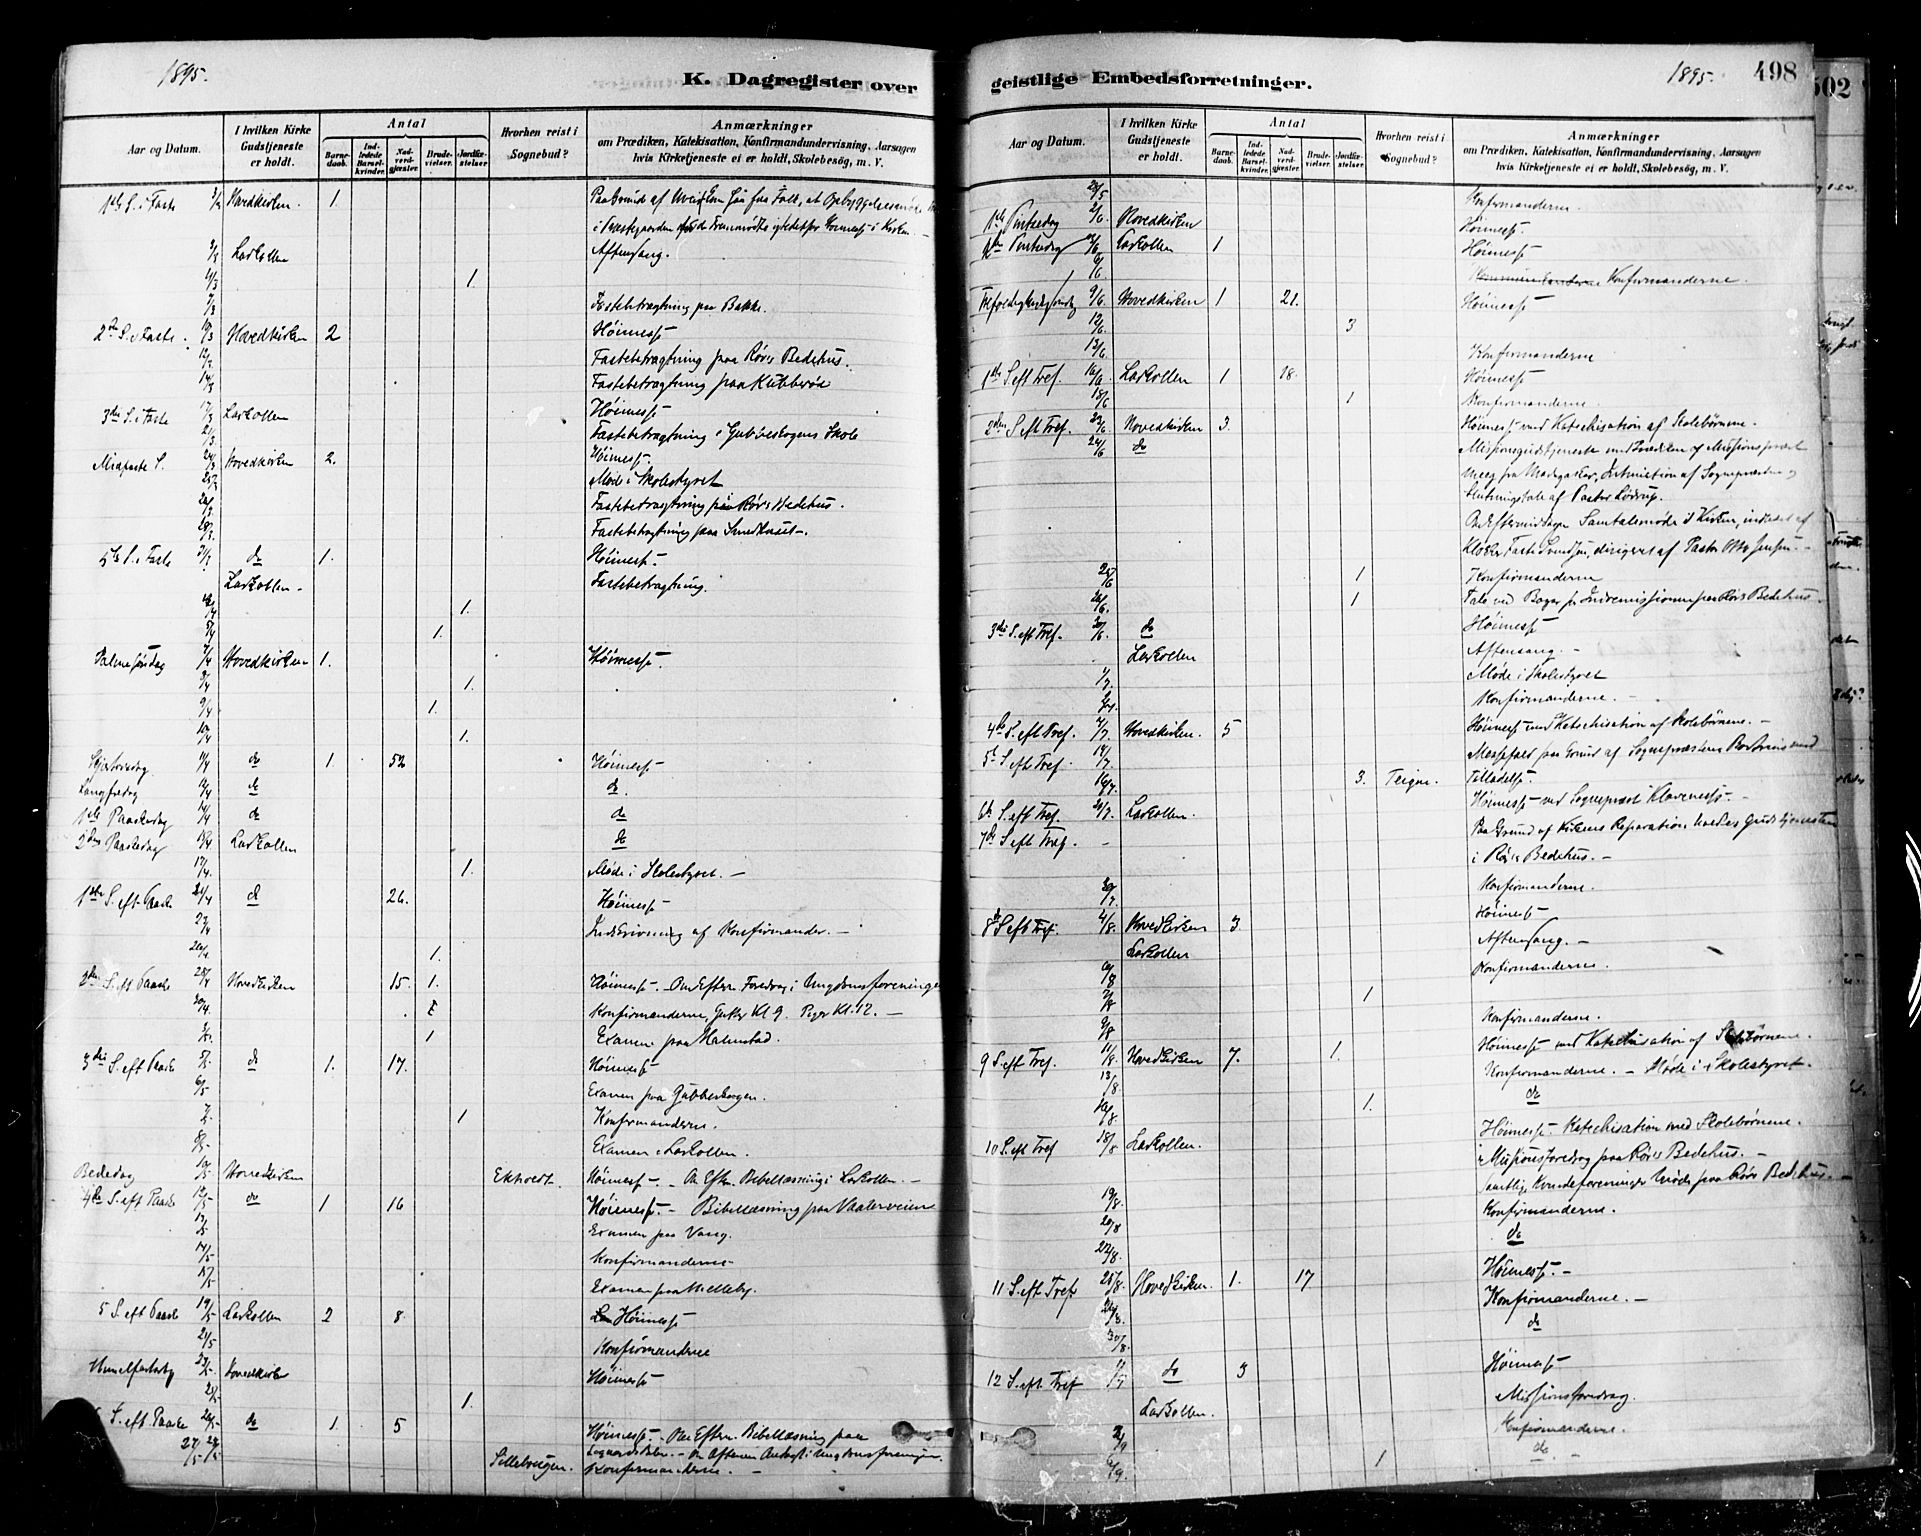 1895.
K. Dagregister over
Aar og Datum.
I hvilken Kirke Gudstjeneste er holdt.
Antal
Barnedaab.
Indledede Barselkvinder.
Nadverdgjæster.
Brudevielser.
Jordfæstelser.
Hvorhen reist i Sognebud?
Anmærkninger
om Prædiken, Katekisation, Konfirmandundervisning, Aarsagen
hvis Kirketjeneste ei er holdt, Skolebesøg, m. V.
1ste S. i Faste Hovedkirken. 1.
i Præstegaarden i Kirken.
3/3 Larkollen Aftensang.
4/3 1.
7/3 Fastebetragtning paa Bakke.
2den S. i Faste. 10/3 Hovedkirken 2 Høimesse
12/3 Fastebetragtning paa Rørs Bedehus.
14/3 Fastebetragtning paa Kubberød
3die S. i Faste 17/3 Larkollen Høimesse
21/3 Fastebetragtning i Gubbeskogens Skole
Midfaste S. 24/3 Hovedkirken 2. Høimesse.
25/3 Møde i Skolestyret
26/3 Fastebetragtning paa Rørs Bedehus.
28/3 Fastebetragtning paa
5te S. i Faste 31/3 do 1. Høimesse.
Larkollen. Fastebetragtning.
1.
5/4 1.
Palmesøndag 7/4 Hovedkirken 1. Høimesse.
8/4 1.
9/4 1.
10/4 1.
Skjærtorsdag 11/4 do 1 52 Høimesse
Langfredag 12/4 do do.
1ste Paaskedag 14/4 do do
2den Paaskedag 15/4 Larkollen do
17/4. 1. Møde i Skolestyret. —
1ste S. eft Paaske 21/4 do 26. Høimesse
23/4 Indskrivning af Konfirmander. —
26/4. 1.
2den S. eft Paaske 28/4 Hovedkirken 15. 1. Høimesse. Om Efterm. Foredrag i Ungdomsforeningen
30/4. Konfirmanderne, Gutter Kl 9. Piger Kl. 12. —
3/5. 1 Examen paa Halmstad.
3die S. eft Paaske 5/5 do 1. 17. Høimesse
6/5 Examen paa Gubbeskogen.
7/5. 1 Konfirmanderne.
8/5 Examen i Larkollen.
Bededag 10/5 Hovedkirken Ekholdt. Høimesse. — Om Efterm. Bibellæsning i Larkollen. —
4de S. eft Paaske 12/5 do 1 16 Høimesse. — Bibellæsning paa Vaalerveien
13/5 Examen paa Vang.
14/5 Konfirmanderne
15/5 Examen paa Melleby.
5 S. eft Paaske 19/5 Larkollen 2 8. Høimesse
21/5 Konfirmanderne
Himmelfartsdag 23/5 Hovedkirken Høimesse
25/5 1.
S. eft Paaske 26/5 do 1. 5 Høimesse. Om Efterm. Bibellæsning paa
om Aftenen i Ungdomsforeningen.
27/5 28/5 Sillebaugen. Konfirmanderne. —
geistlige Embedsforretninger.
1895. 498
502
Aar og Datum.
I hvilken Kirke Gudstjeneste er holdt.
Antal
Barnedaab.
Indledede Barselkvinder.
Nadverdgjæster.
Brudevielser.
Jordfæstelser.
Hvorhen reist i Sognebud?
Anmærkninger
om Prædiken, Katekisation, Konfirmandundervisning, Aarsagen
hvis Kirketjeneste ei er holdt, Skolebesøg, m. V.
28/5 Konfirmanderne.
1ste Pintsedag 2/6 Hovedkirken Høimesse.
2den Pintsedag Larkollen 1 Høimesse
6/6 Konfirmanderne.
Trefoldighedssøndag 9/6 Hovedkirken 1 21. Høimesse
12/6. 3
13/6. Konfirmanderne
1ste S eft Tref. 16/6 Larkollen 1 18. Høimesse
18/6 1 Konfirmanderne.
2den S eft Tref. 23/6 Hovedkirken 3. Høimesse med Katechisation af Skolebørnene.
24/6 do Missionsgudstjeneste med Prædiken af Missionspræst
fra Madagaskar, af Sognepræsten og
Slutningstale af Pastor Lødrup.
Om Eftermiddagen Samtalemøde i Kirken, indledet af
Klokker Svendsen, dirigeret af Pastor Jensen. —
25/6 1 Konfirmanderne
26/6. 1 Tale ved Bager for Indremissionen paa Rørs Bedehus.
3die S. eft Tref. 30/6 do Høimesse
Larkollen Aftensang. —
1/7. Møde i Skolestyret
2/7. Konfirmanderne. —
4de S. eft Tref. 7/7 Hovedkirken. 5 Høimesse med Katechisation af Skolebørnene. —
5te S eft Tref. 14/7. Messefald paa Grund af Sognepræstens Bortreise med
16/7. 3. Teigne. Tilladelse.
6te S. eft Tref. 21/7. Larkollen. Høimesse ved Sognepræst Klaveness. —
7de S eft Tref. — Paa Grund af Kirkens Reparation holdtes Gudstjenesten
i Rørs Bedehus. —
30/7. Konfirmanderne.
8de S eft Tref. 4/8. Hovedkirken 3 Høimesse
Larkollen Aftensang. —
6/8 Konfirmanderne.
7/8 1
9/8 Konfirmanderne.
9 S. eft Tref. 11/8. Hovedkirken 7. 1. Høimesse med Katechisation af Skolebørnene.
13/8 Konfirmanderne. — Møde i Skolestyret.
16/8 1. do
10 S. eft Tref 18/8 Larkollen. Høimesse. Katechisation med Skolebørnene.
Missionsforedrag paa Rørs Bedehus. —
19/8. Samtlige Kvindeforeninger Møde paa Rørs Bedehus. —
20/8 Konfirmanderne.
22/8. do
11 S. eft Tref 25/8. Hovedkirken. 1. 17 Høimesse. —
Konfirmanderne. —
30/8. do
12 S. eft Tref 1/9 do 3 Høimesse
Larkollen. Missionsforedrag.
Konfirmanderne.
6/9. 1 do